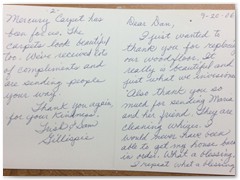 9-20-06
Dear Dan,
I just wanted to
thank you for replacing
our wood floors. It
really is beautiful and
just what we envisioned.
Also thank you so
much for sending Maria
and her friend. They are
cleaning whizes. I
would never have been
able to get my house back
in order. What a blessing.
I repeat, what a blessing
2.
Mercury Carpet has
been for us. The
carpets look beautiful
too. We've received lots
of compliments and
are sending people
your way.
Thank you again
for your kindness.
Trish & Sam
Gillispie